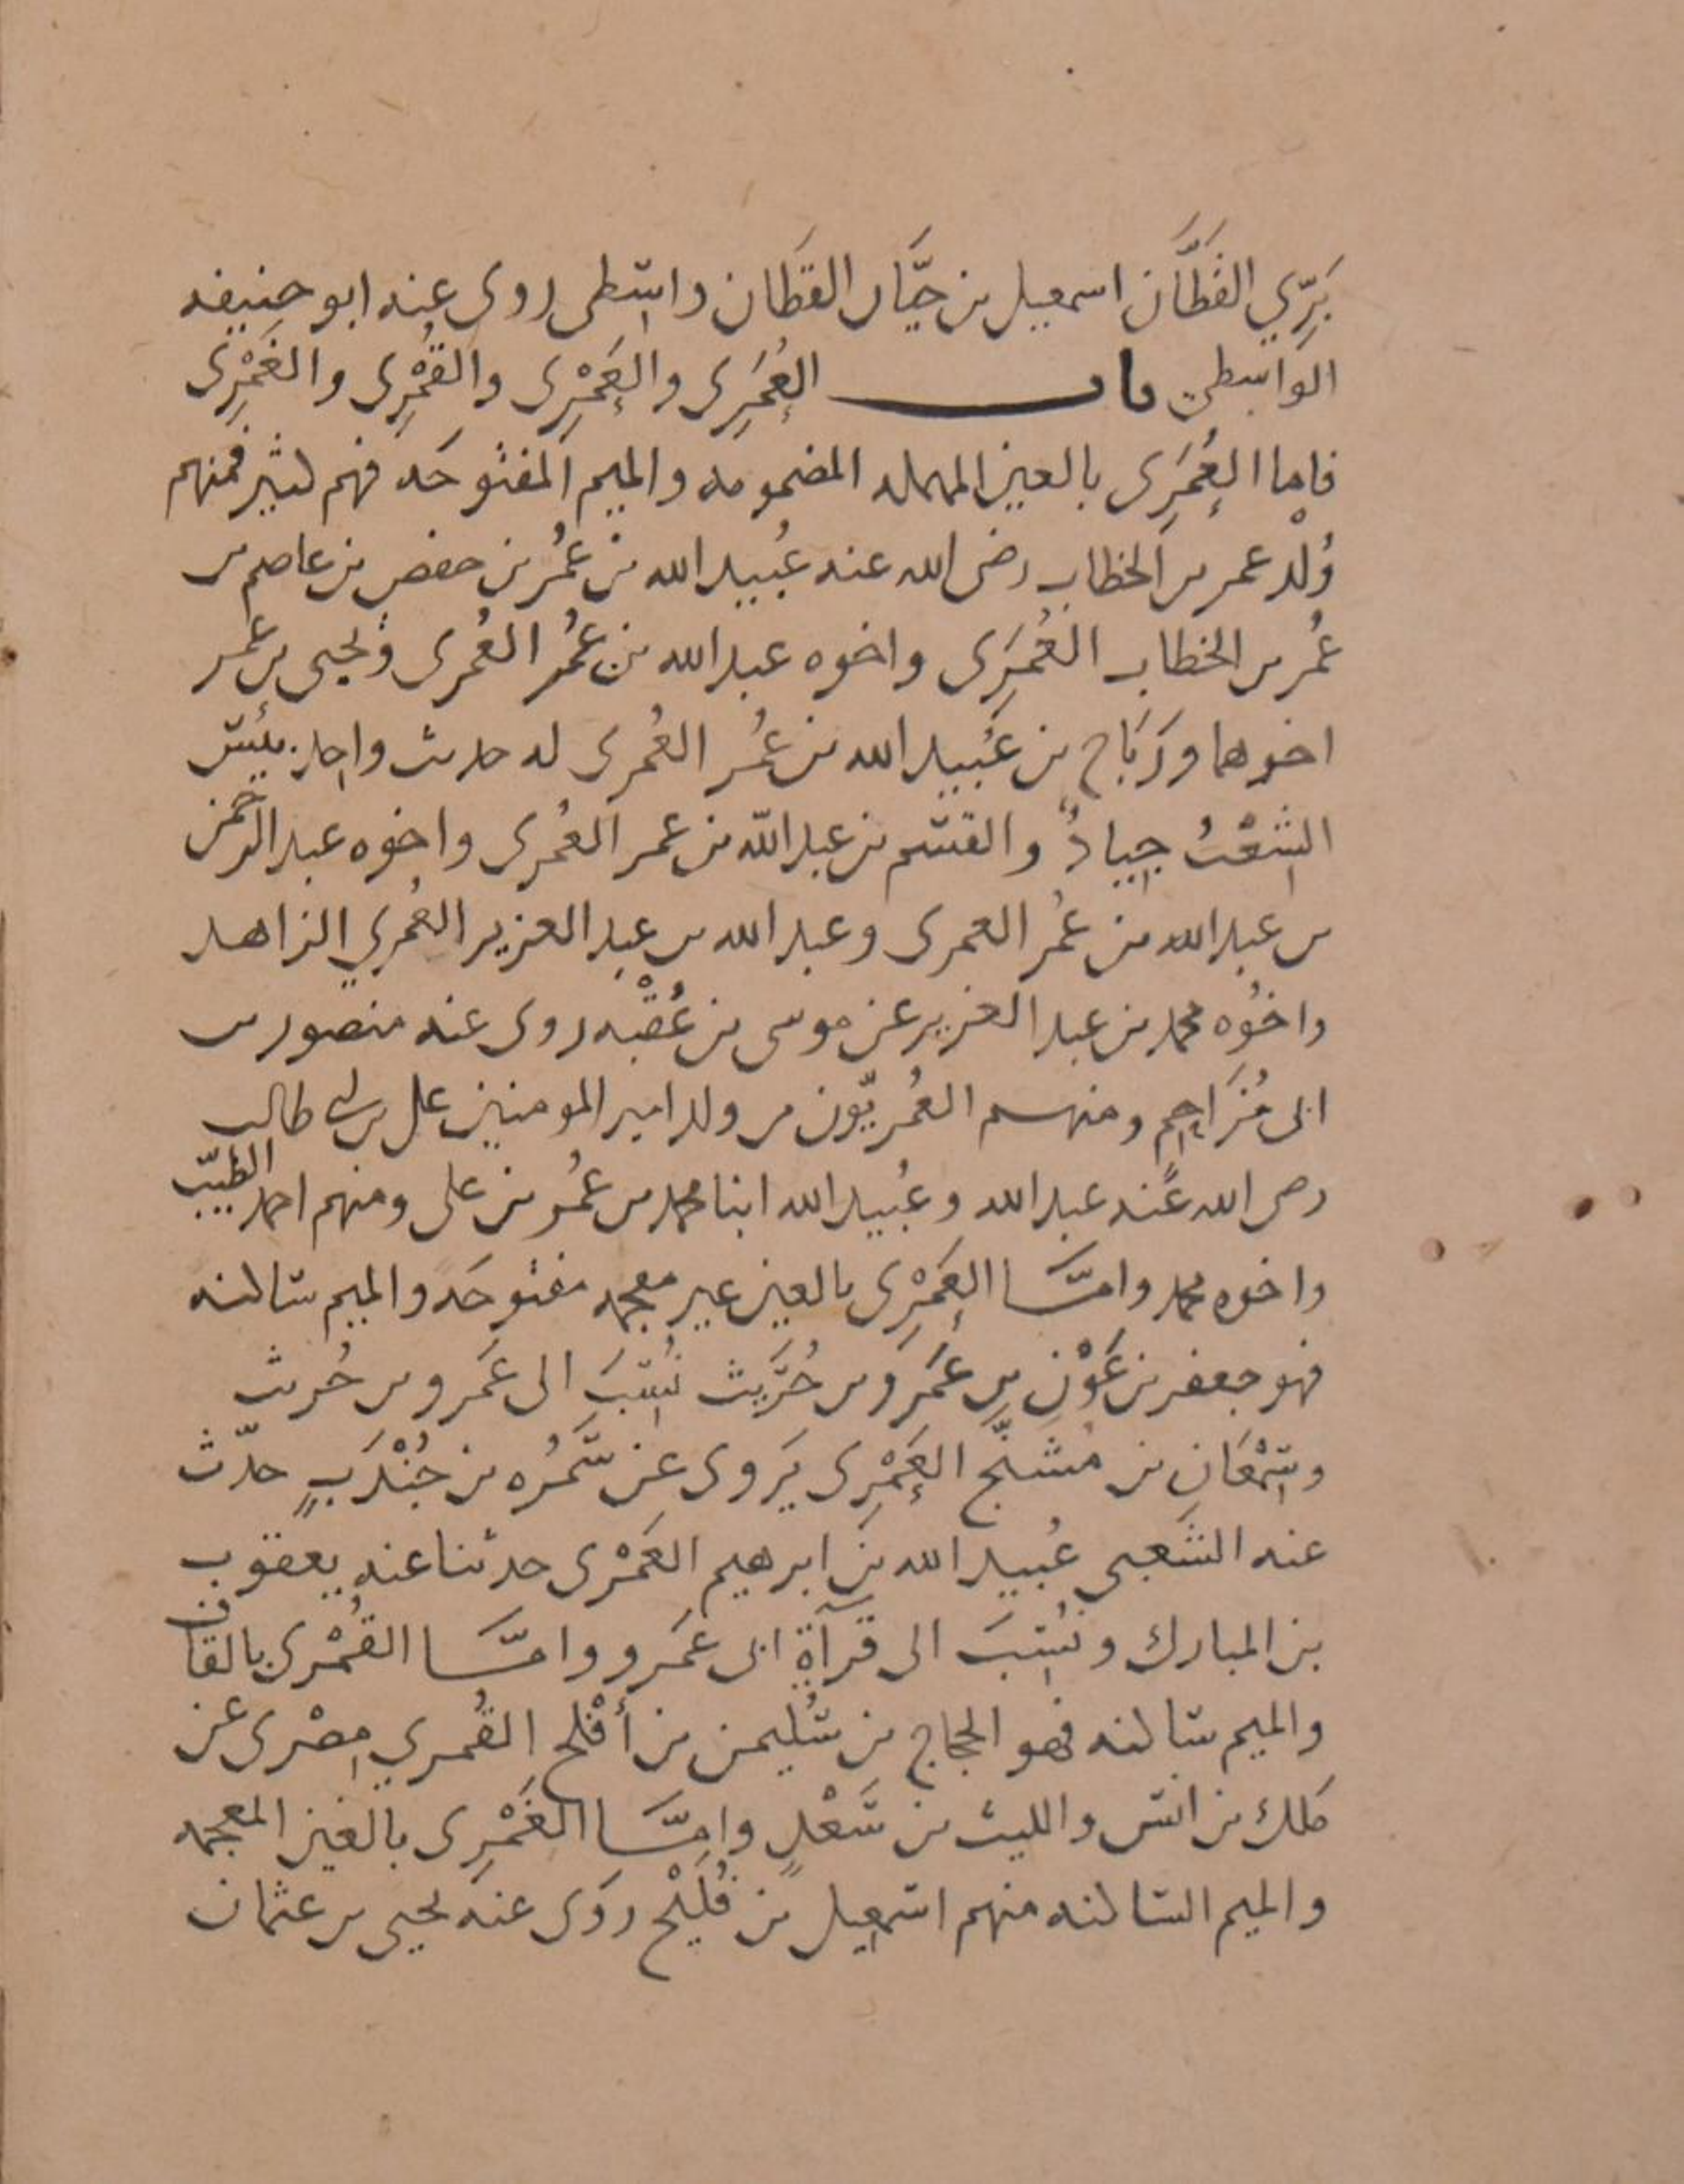 بَرِّي القَطَّان اسمعيل بن حيَّان القطان واسطى روى عنه ابو حنيفه
الواسطى باب العُمَرِى والعَمْرِى والقُمْرِى والغَمْرِى
فاما العُمَرِى بالعين المهمله المضمومه والميم المفتوحَه فهم كثير فمنهم
وُلْد عمر بن الخطاب رضى الله عنه عُبيد الله بن عُمُر بن حفص بن عاصم بن
عُمر بن الخطاب العُمَرِى واخوه عبد الله بن عُمر العُمرى ويحيى بن عمر
اخوهما ورَبَاح بن عُبيد الله بن عُمُر العُمرى له حديث واحد بئس
الشعْبُ جيادٌ والقسم بن عبد الله بن عمر العُمرى واخوه عبد الرحمن
بن عبد الله بن عُمر العمرى وعبد الله بن عبد العزيز العُمري الزاهد
واخوُه محمد بن عبد العزيز عن موسى بن عُقْبه روى عنه منصور بن
ابى مُزَاحِم ومنهم العُمريّون من ولد امير المومنين على بن ابى طالب
رضى الله عنه عبد الله وعُبيد الله ابنا محمد بن عُمُر بن على ومنهم احمد الطيّب
واخوه محمد وامَّا العَمْرِى بالعين غير معجمه مفتوحَه والميم ساكنه
فهو جعفر بن عَوْنِ بن عَمرو بن حُرَيث نُسِبَ الى عَمرو بن حُريث
وسِمْعَان بن مُشنّج العَمْرِى يَروى عن سَمُره بن جُنْدَبٍ حدّث
عنه الشَعبى عُبيد الله بن ابرهيم العَمْرى حدثنا عنه يعقوب
بن المبارك ونُسِبَ الى قرآةِ ابى عَمرو وامَّا القُمْرى بالقاف
والميم ساكنه فهو الحجاج بن سُليمن بن أفْلح القُمري مِصْرى عن
ملك بن انس والليث بن سَعْدٍ وامَّا الغَمْرِى بالغين المعجمه
والميم الساكنه منهم اسمعيل بن فُلَيْح روَى عنه يحيى بن عثمان